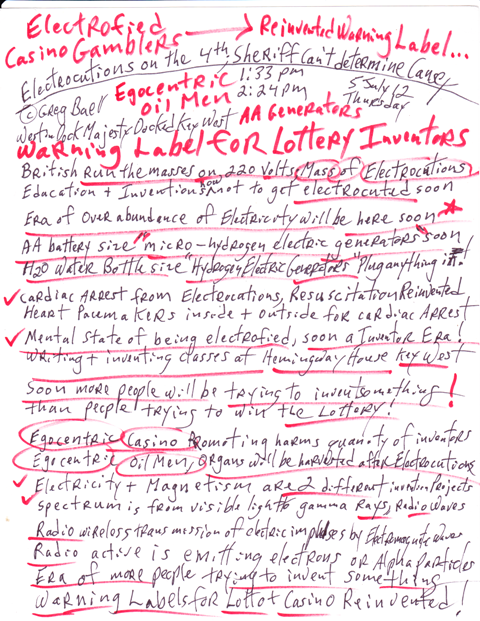 Electrofied
Casino Gamblers → Reinvented Warning Label...
Electrocutions on the 4th, Sheriff Can't determine Cause,
© Greg Buell Egocentric 1:33 pm 5 July 12
Oil Men 2:24 pm Thursday
Westin Dock Majesty Docked Key West AA Generators
Warning Label for Lottery Inventors
British Run the masses on 220 volts Mass of Electrocutions
Education + Inventions how not to get electrocuted soon
Era of Over abundance of Electricity will be here soon
AA battery size "micro-hydrogen electric generators" soon!
H2O Water Bottle size "Hydrogen Electric Generators" Plug anything in!
✓ Cardiac Arrest from Electrocutions, Resuscitation Reinvented
Heart Pacemakers inside + outside for cardiac Arrest
✓ Mental State of being electrofied, soon a Inventor Era!
Writing + inventing classes at Hemingway House Key West
Soon more people will be trying to invent something!
than people trying to win the Lottery!
Egocentric Casino Promoting harms quanity of inventors
Egocentric Oil Men, Organs will be harvested after Electrocutions
✓ Electricity + Magnetism are 2 different invention Projects
✓ Spectrum is from visible light to gamma Rays, Radio Waves
Radio wireless transmission of electric impulses by Electromagnetic Waves
Radio active is emitting electrons or Alpha particles
Era of more people trying to invent something
Warning Labels for Lotto + Casino Reinvented!